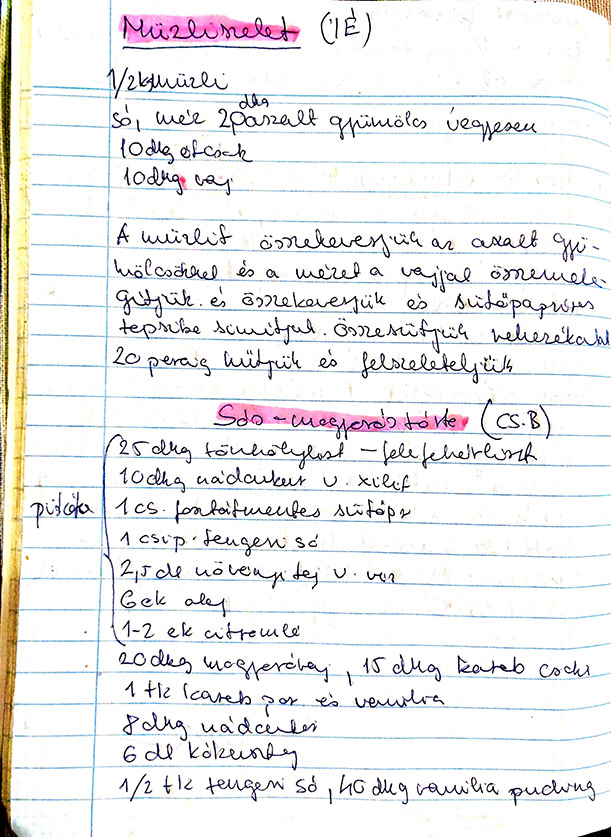 Müzliszelet (IÉ)
1/2kg müzli
só, méz 20dkg aszalt gyümölcs vegyesen
10dkg étcsok
10dkg vaj
A müzlit összekeverjük az aszalt gyü-
mölcsökkel és a mézet a vajjal összemele-
gítjük és összekeverjük és sütőpapíros
tepsibe simítjuk. összesütjük
20 percig hűtjük és felszeleteljük
Sós-mogyorós torta (CS.B)
25dkg tönkölyliszt - fele fehérliszt
10dkg nádcukor v. xilit
piskóta
1 cs. foszfátmentes sütőpor
1 csip. tengeri só
2,5 dl növényi tej v. víz
6 ek olaj
1-2 ek citromlé
20dkg mogyoróvaj, 15 dkg karob csoki
1 tk karob por és vanília
8dkg nádcukor
6 dl kókusztej
1/2 tk tengeri só, 40 dkg vanília puding